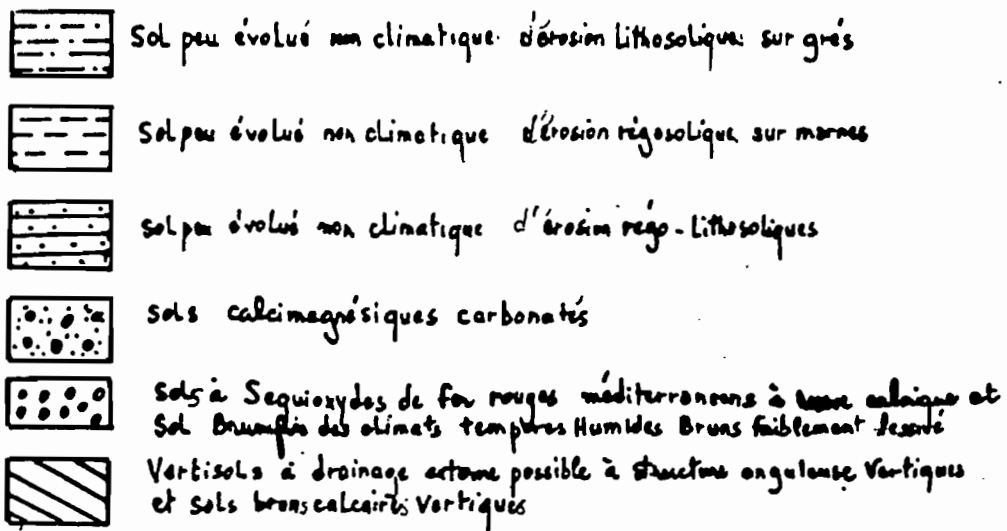 Sol peu évolué non climatique d'érosion Lithosolique sur grés
Sol peu évolué non climatique d'érosion régosolique sur marnes
Sol peu évolué non climatique d'érosion régo-Lithosoliques
Sols calcimagnésiques carbonatés
Sols à Sequioxydes de fer rouges méditerranéens à et
Sol des climats tempéres Humides Bruns faiblement lessivé
Vertisols à drainage externe possible à structure anguleuse Vertiques
et Sols bruns calcaires Vertiques